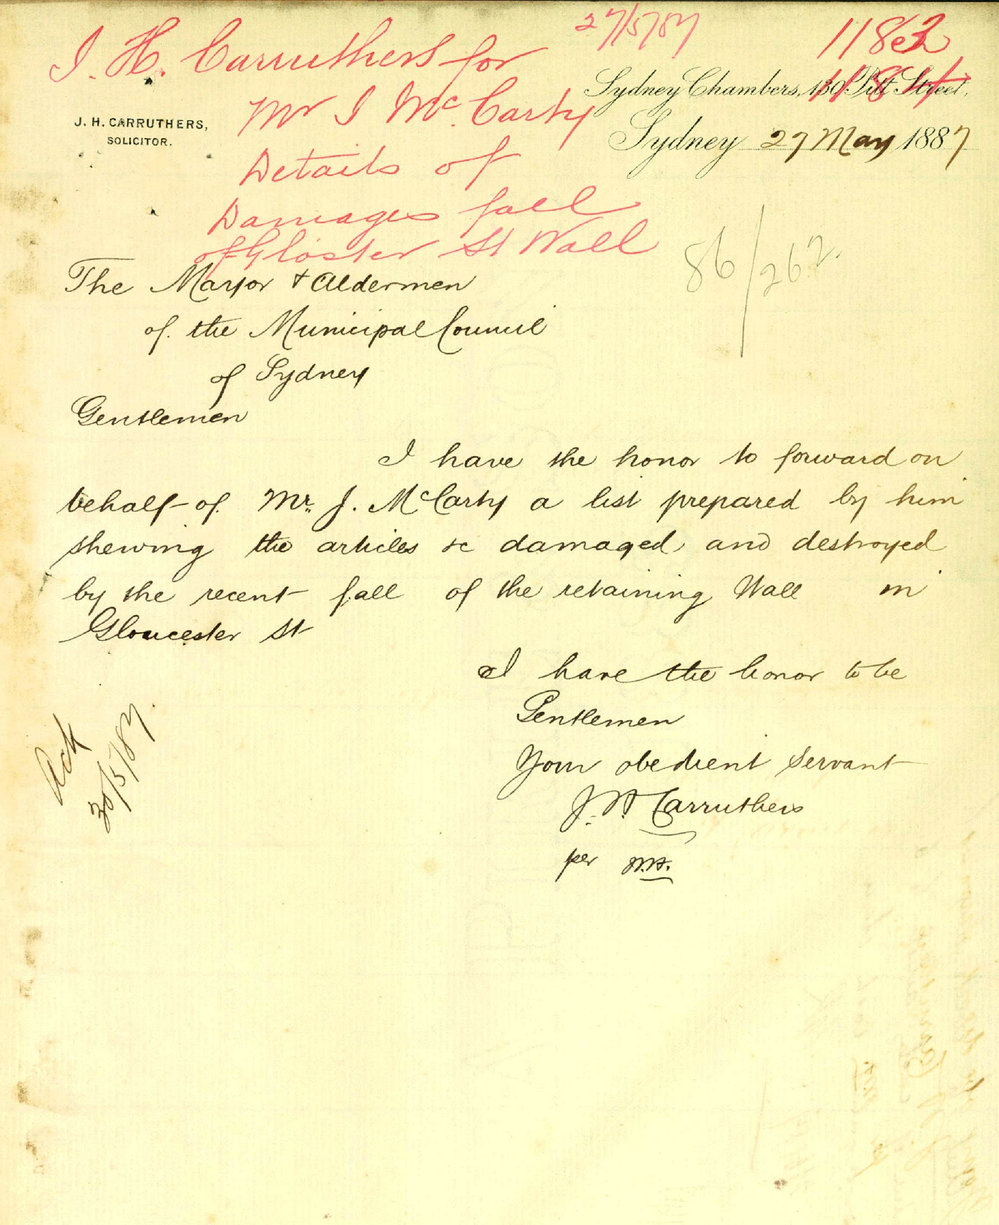 27/5/87
1182
1184
J. H. Carruthers for
Mr J McCarty
Details of
Damages fall
of Gloster St Wall
J. H. CARRUTHERS,
SOLICITOR.
Sydney Chambers, 130 Pitt Street,
Sydney 27 May 1887
86/262.
The Mayor & Aldermen
of the Municipal Council
of Sydney
Gentlemen
I have the honor to forward on
behalf of Mr. J. McCarty a list prepared by him
shewing the articles &c damaged and destroyed
by the recent fall of the retaining Wall in
Gloucester St
I have the honor to be
Gentlemen
Your obedient servant
J. H. Carruthers
per
Ack
30/5/87.